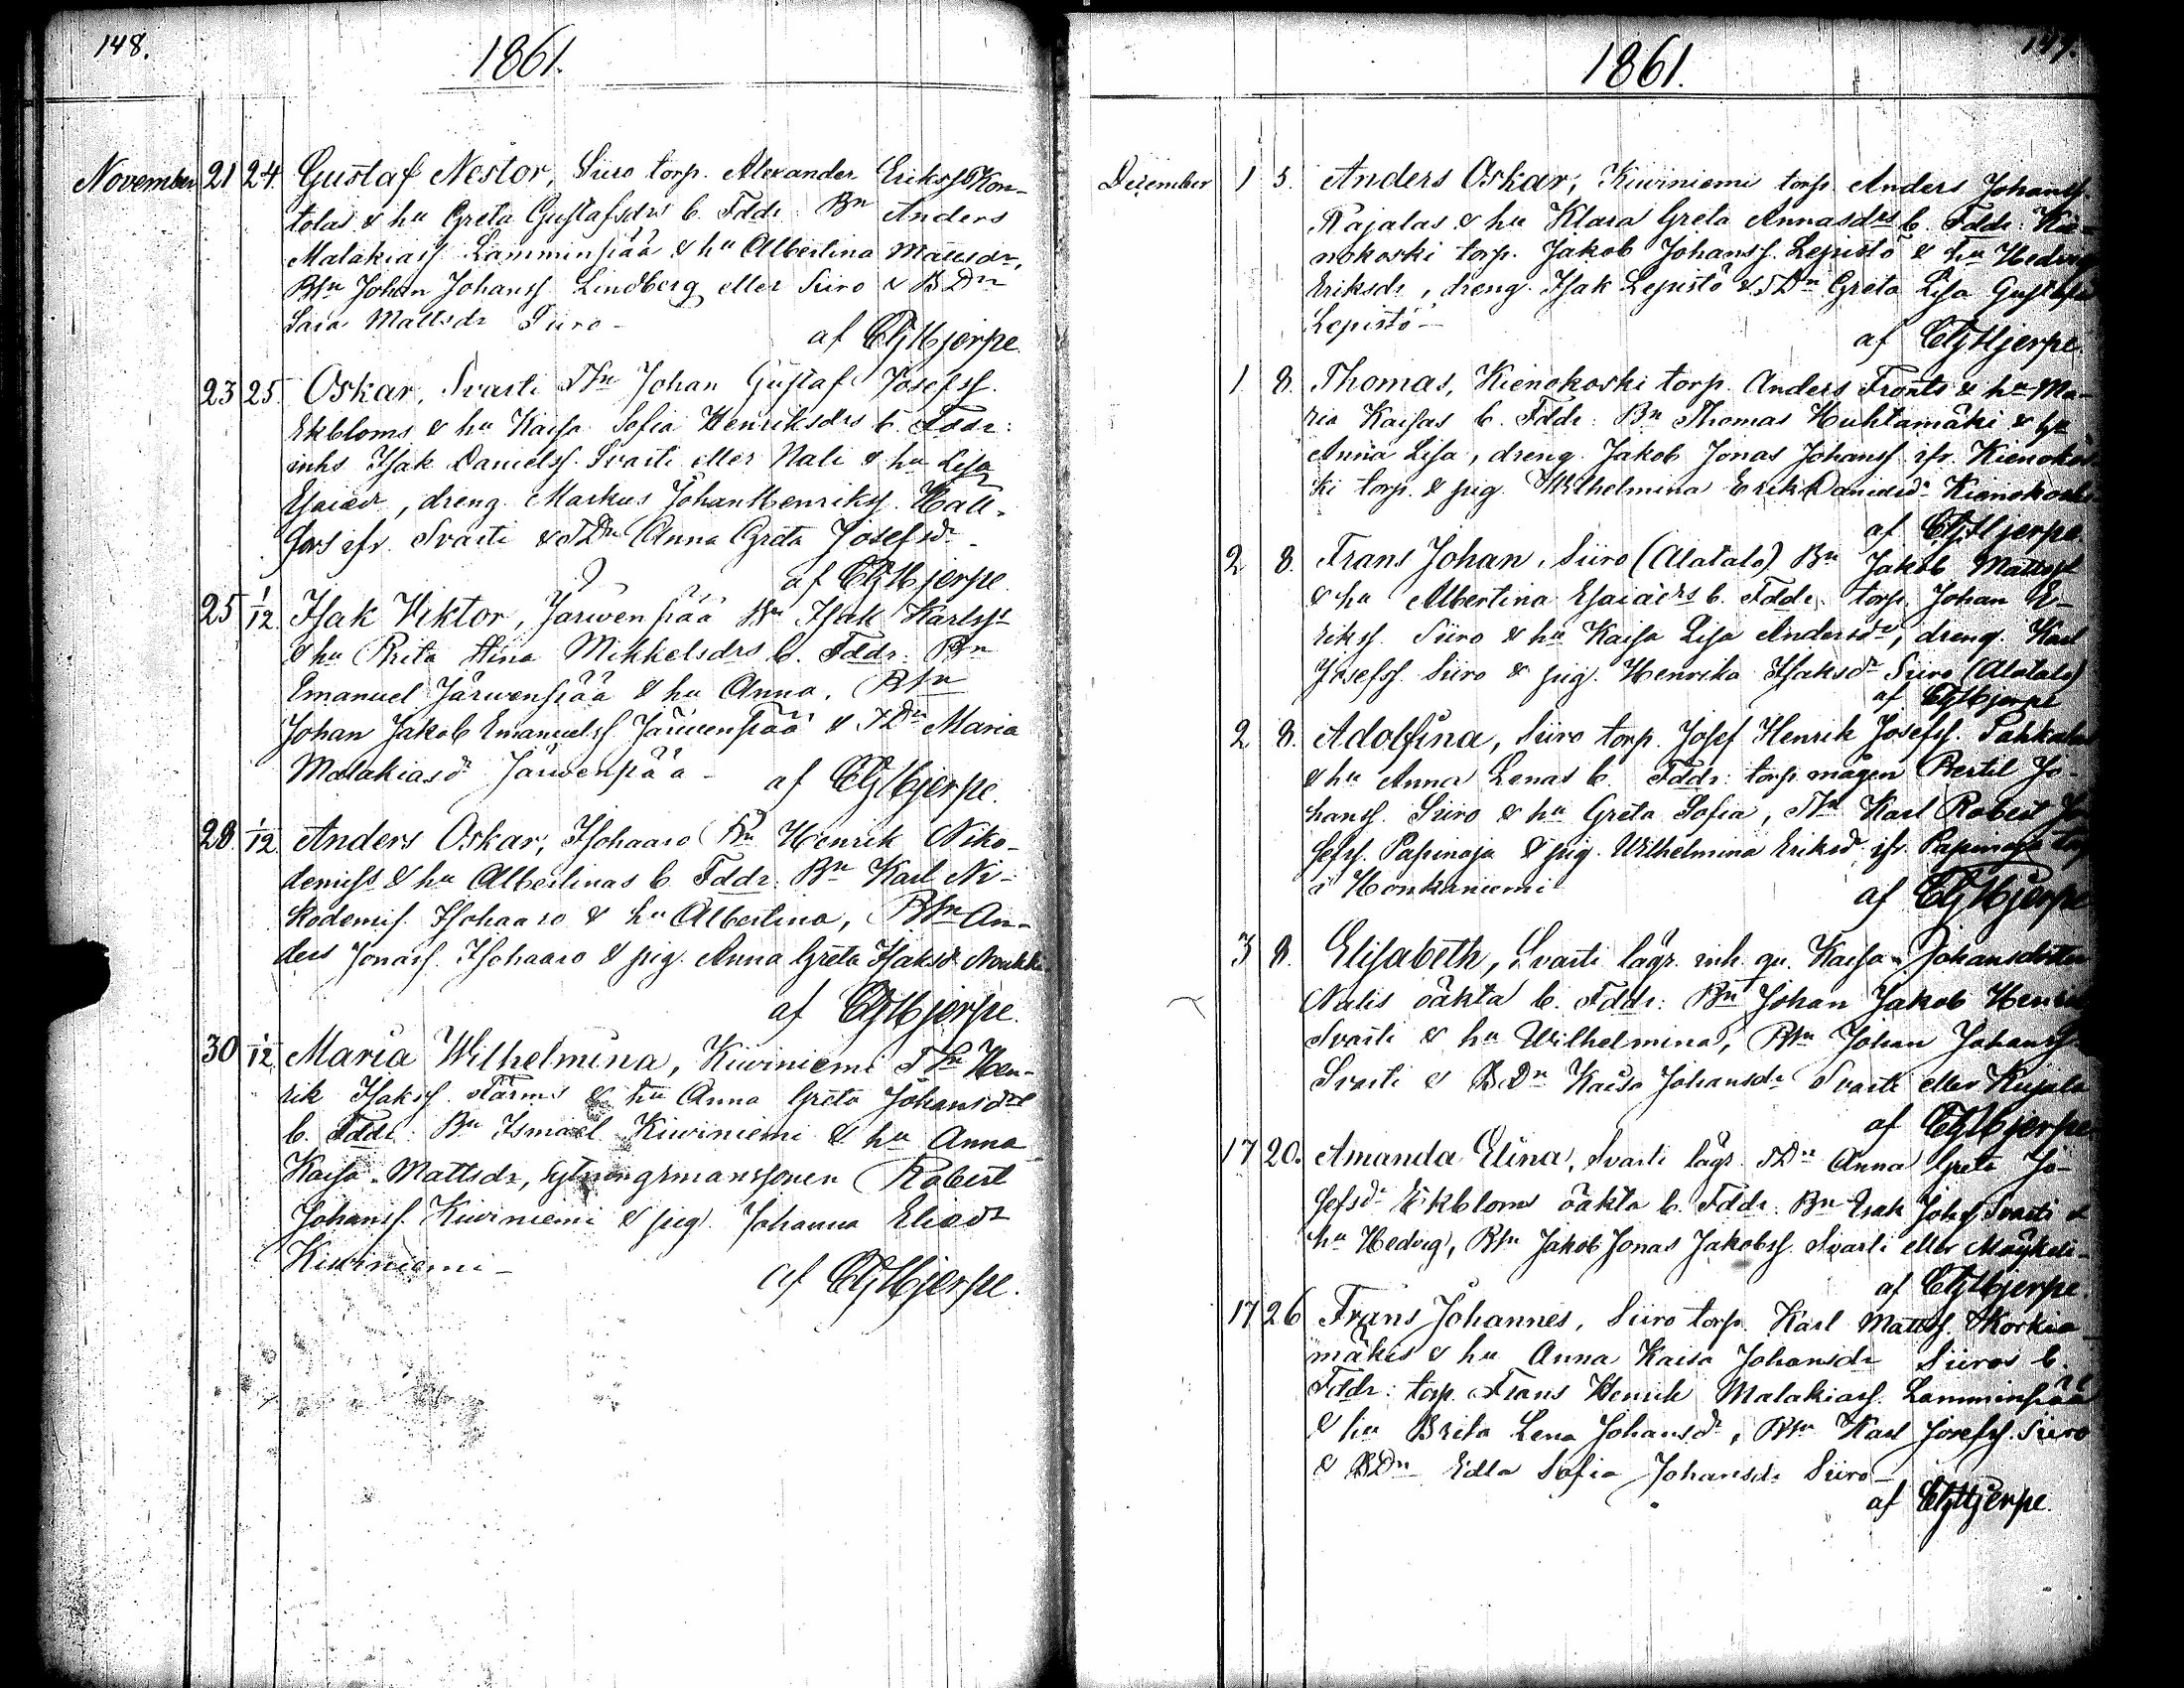 148.
1861.
November 21 24. Gustaf Nestor, Siiro torp. Alexander Erikss Kon-
tolas & hu Greta Gustafsdrs b. Fddr: Bn Anders
Malakiass Lamminpää & hu Albertina Mattsdr,
BSn Johan Johanss Lindberg eller Siiro & BDn
Sara Mattsdr Siiro –
af CGHjerpe.
23 25. Oskar, Svarti Johan Gustaf Josefss.
Ekbloms & hu Kaisa Sofia Henriksdrs b. Fddr:
inhs Isak Danielss. Svarti eller Nali & hu Lisa
Esaiedr, dreng. Markus Johan Henrikss.
ifr. Svarti & TDn Anna Greta Josefsdr –
af CGHjerpe.
25 1/12 Isak Viktor, Jarwenpää Isak Karlss
& hu Brita Stina Mikkelsdrs b. Fddr. Bn
Emanuel Järwenpää & hu Anna, BSn
Johan Jakob Emanuelss Järwenpää & TDn Maria
Malakiasdr Järwenpää –
af CGHjerpe.
28 1/12 Anders Oskar, Isohaaro Bn Henrik Niko-
demiss & hu Albertinas b. Fddr: Bn Karl Ni-
kodemis. Isohaaro & hu Albertina, BSn An-
ders Jonass. Isohaaro & pig. Anna Greta Isaksdr
af CGHjerpe.
30 1/12 Maria Wilhelmina, Kiwiniemi TSn Hen-
rik Isakss. & hu Anna Greta Johansdrs
b. Fddr: Bn Ismael Kiwiniemi & hu Anna
Kaisa Mattsdr, sytningsmanssonen Robert
Johanss. Kiwiniemi & pig. Johanna Eliedr
Kiwiniemi –
af CGHjerpe.
1861.
December 1 5. Anders Oskar, Kiwiniemi torp. Anders Johanss.
Rajalas & hu Klara Greta Annasdrs b. Fddr: Kie-
nokoski torp. Jakob Johanss. Lepistö & hu Hedvig
Eriksdr, dreng. Isak Lepistö & TDn Greta Lisa
Lepistö –
af CGHjerpe
1 8. Thomas, Kienokoski torp. Anders Fronts & hu Ma-
ria Kaisas b. Fddr: Bn Thomas Huhtamäki & hu
Anna Lisa, dreng Jakob Jonas Johanss ifr. Kienokos-
ki torp. & pig. Wilhelmina Erik Danielsdr Kienokoski
af CGHjerpe
2 8. Frans Johan, Siiro (Alatalo) Bn Jakob Mattss
& hu Albertina Esaiaedrs b. Fddr: torp. Johan E-
rikss. Siiro & hu Kaisa Lisa Andersdr, dreng. Karl
Josefss. Siiro & pig. Henrika Isaksdr Siiro (Alatalo)
af CGHjerpe
2 8. Adolfina, Siiro torp. Josef Henrik Josefss. Pahkalas
& hu Anna Lenas b. Fddr: torp. mågen Bertil Jo-
hanss. Siiro & hu Greta Sofia, TSn Karl Robert Jo-
sefss. Papinaja & pig. Wilhelmina Eriksd. ifr. Papinaja torp
i Honkaniemi
af CGHjerpe
3 8. Elisabeth, Svarti lägr. inh. qu. Kaisa Johansdotter
Nalis oäkta b. Fddr: Bn Johan Jakob
Svarti & hu Wilhelmina, BSn Johan Johanss
Svarti & BDn Kaisa Johansdr Svarti eller Kujala
af CGHjerpe
17 20. Amanda Elina, Svarti lägr. TDn Anna Greta Jo-
sefsdr Ekbloms oäkta b. Fddr: Bn Isak Johs Svarti &
hu Hedvig, BSn Jakob Jonas Jakobss. Svarti eller
af CGHjerpe.
17 26 Frans Johannes, Siiro torp. Karl Mattss. Korkia-
mäkis & hu Anna Kaisa Johansdr Siiros b.
Fddr: torp. Frans Henrik Malakiass. Lamminpää
& hu Brita Lena Johansdr, BSn Karl Josefss. Siiro
& BDn Edla Sofia Johansdr Siiro –
af CGHjerpe.